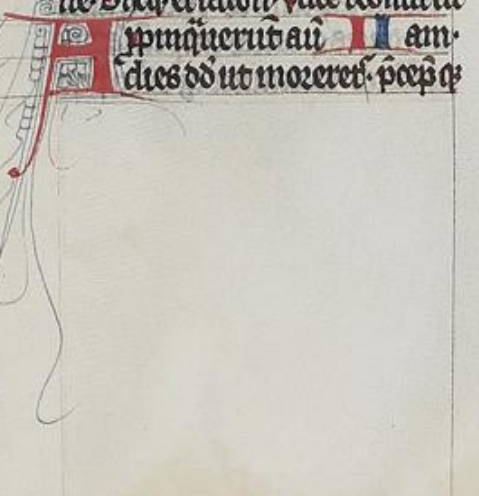 A ppinq̃uerũt aũ II am·
dies dd̃ ut moreret᷑· p̃cep̃ qȝ